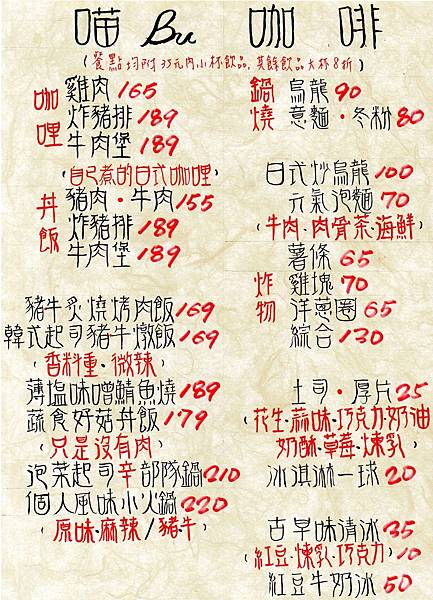 喵 Bu 咖啡
(餐點均附35元內小杯飲品,其餘飲品大杯8折)
咖哩
雞肉 165
炸豬排 189
牛肉堡 189
(自己煮的日式咖哩)
丼飯
豬肉·牛肉 155
炸豬排 189
牛肉堡 189
豬牛炙燒烤肉飯 169
韓式起司豬牛燉飯 169
(香料重·微辣)
薄塩味噌鯖魚燒 189
蔬食好菇丼飯 179
(只是沒有肉)
泡菜起司辛部隊鍋 210
個人風味小火鍋 220
(原味·麻辣/豬·牛)
鍋燒
烏龍 90
意麵·冬粉 80
日式炒烏龍 100
元氣泡麵 70
(牛肉·肉骨茶·海鮮)
炸物
薯條 65
雞塊 70
洋蔥圈 65
綜合 130
土司·厚片 25
(花生·蒜味·巧克力·奶油
奶酥·草莓·煉乳)
冰淇淋一球 20
古早味清冰 35
(紅豆·煉乳·巧克力)10
紅豆牛奶冰 50